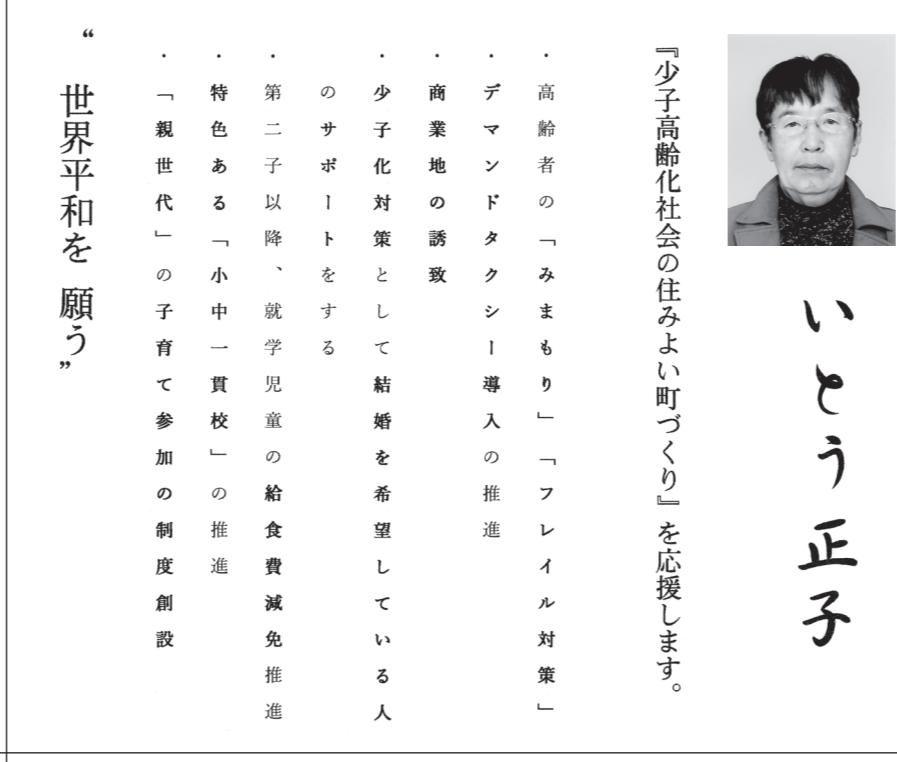 いとう正子
『少子高齢化社会の住みよい町づくり』を応援します。
・高齢者の「みまもり」「フレイル対策」
・デマンドタクシー導入の推進
・商業地の誘致
・少子化対策として結婚を希望している人
のサポートをする
・第二子以降、就学児童の給食費減免推進
・特色ある「小中一貫校」の推進
・「親世代」の子育て参加の制度創設
“世界平和を 願う”